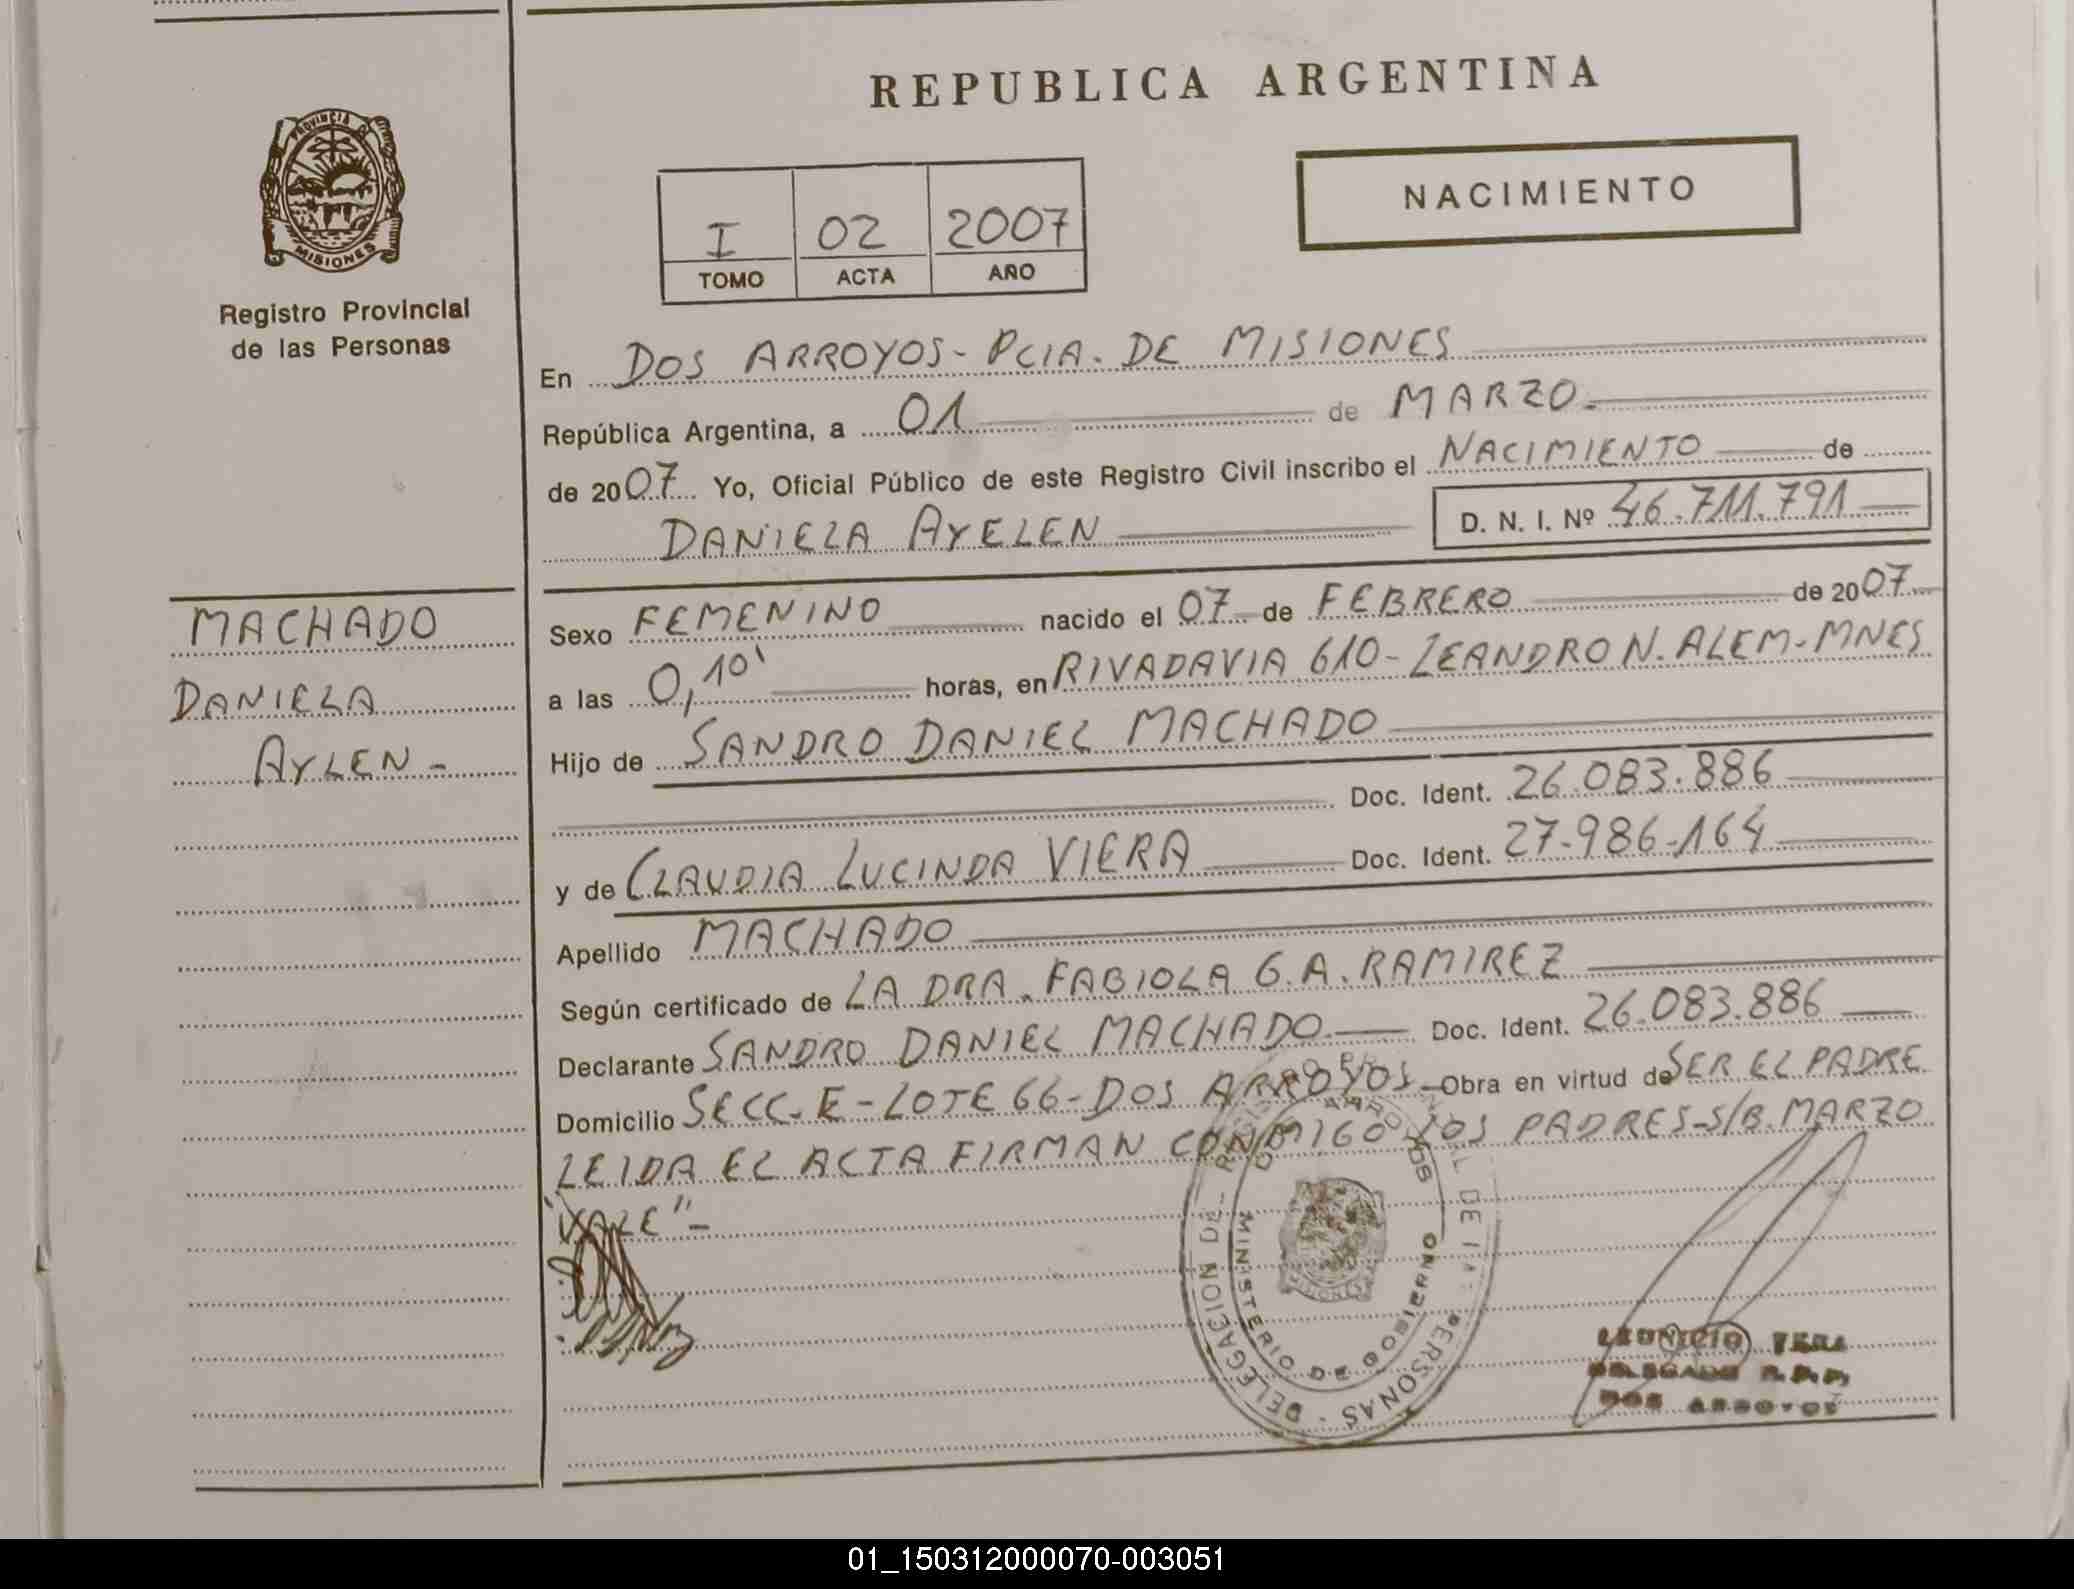 REPUBLICA ARGENTINA
NACIMIENTO
I 02 2007
TOMO ACTA AÑO
PROVINCIA DE
MISIONES
Registro Provincial
de las Personas
En DOS ARROYOS - PCIA. DE MISIONES
República Argentina, a 01 de MARZO.
de 2007 Yo, Oficial Público de este Registro Civil inscribo el NACIMIENTO de
DANIELA AYELEN D. N. I. Nº 46.711.791
MACHADO
DANIELA
AYLEN -
Sexo FEMENINO nacido el 07 de FEBRERO de 2007
a las 0,10' horas, en RIVADAVIA 610 - LEANDRO N. ALEM - MNES
Hijo de SANDRO DANIEL MACHADO
Doc. Ident. 26.083.886
y de CLAUDIA LUCINDA VIERA Doc. Ident. 27-986-164
Apellido MACHADO
Según certificado de LA DRA. FABIOLA G. A. RAMIREZ
Declarante SANDRO DANIEL MACHADO. Doc. Ident. 26.083.886
Domicilio SECC. E - LOTE 66 - DOS ARROYOS - Obra en virtud de SER EL PADRE
LEIDA EL ACTA FIRMAN CONMIGO LOS PADRES - S/B. MARZO
"VALE" -
DELEGACION DO
PERSONAS
MINISTERIO DE GOBIERNO
DOS ARROYOS
LEONICIO VERA
DELEGADO R.P.P.
DOS ARROYOS
01_150312000070-003051